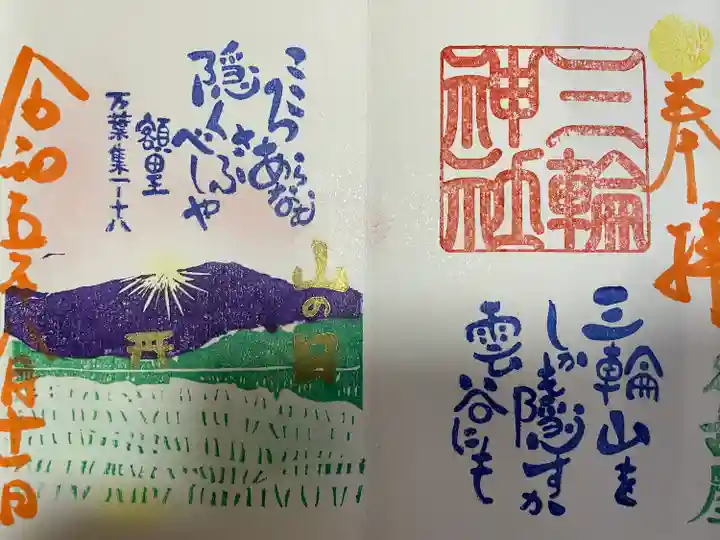 奉拝
名古屋
三輪
神社
三輪山を
しかも隠すか
雲谷にも
こころあらなむ
隠くさぶべしや
額田王
万葉集一-十八
山の日
令和五年八月十一日